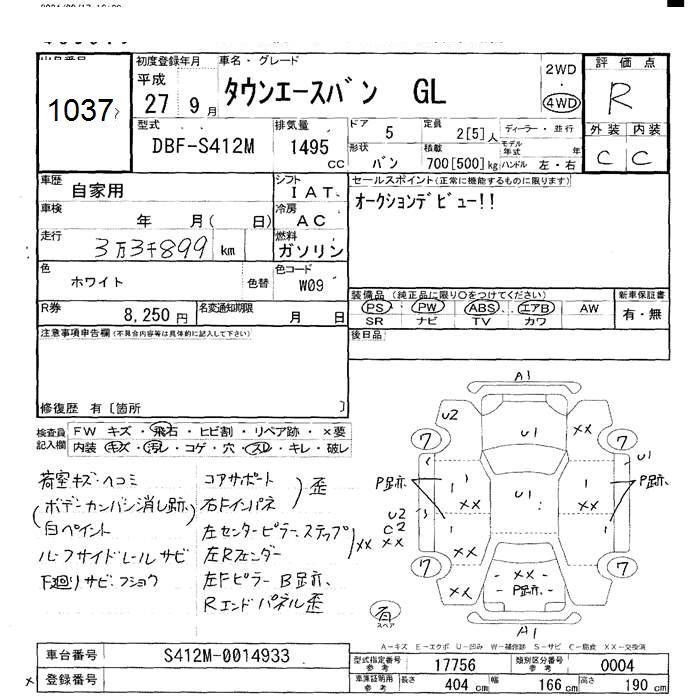 1037
初度登録年月
平成
27 9 月
車名・グレード
タウンエースバン GL
2WD
・
4WD
評価点
R
型式
DBF-S412M
排気量
1495
CC
ドア
5
定員
2[5]人
ディーラー・並行
モデル年式 年
形状
バン
積載
700[500]kg
ハンドル 左・右
外装 内装
C C
車歴
自家用
シフト
IAT
セールスポイント(正常に機能するものに限ります)
オークションデビュー!!
車検
年 月( 日)
冷房
AC
走行
3万3千899 km
燃料
ガソリン
色
ホワイト
色替
色コード
W09
装備品(純正品に限り○をつけてください)
PS・PW・ABS・エアB・AW
SR ナビ TV カワ
新車保証書
有・無
R券
8,250円
名変通知期限
月 日
後日品
注意事項申告欄(不具合内容等は具体的に記入して下さい)
修復歴 有〔箇所 〕
検査員記入欄
FW キズ・飛石・ヒビ割・リペア跡・×要
内装 キズ・汚レ・コゲ・穴・スレ・キレ・破レ
荷室キズ・ヘコミ
ボデーカンバン消し跡
白ペイント
ルーフサイドレールサビ
下廻りサビ・フショク
コアサポート
右Fインパネ
歪
左センターピラー、ステップ
左Rフェンダー
XX
左Fピラー B足亦、
Rエンドパネル歪
A1
U2
U1
XX
7
7
U1
P足亦、
P足亦、
XX
U1
XX
U2
C2
XX
XX
XX
7
7
XX
XX
P足亦、
A1
有
スペア
A-キズ E-エクボ U-凹み W-補修跡 S-サビ C-腐食 XX-交換済
車台番号
S412M-0014933
登録番号
型式指定番号
参考
17756
類別区分番号
参考
0004
車庫証明用
参考
長さ
404 cm
幅
166 cm
高さ
190 cm